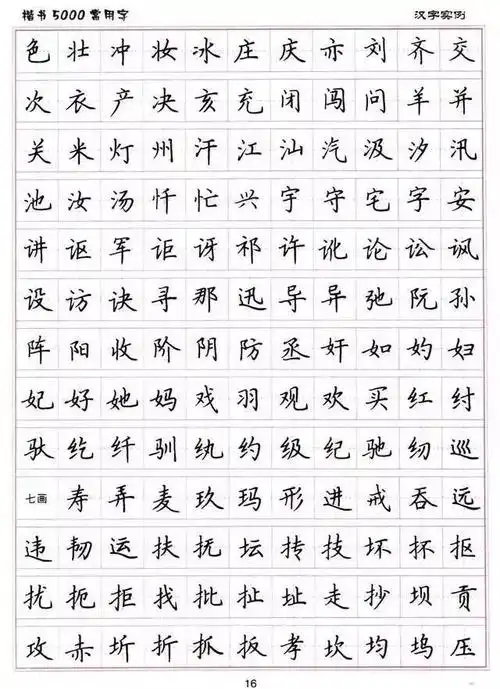 楷书5000常用字 汉字实例
色壮冲妆冰庄庆亦刘齐交
次衣产决亥充闭闯问羊并
关米灯州汗江汕汽汲汐汛
池汝汤忏忙兴宇守宅字安
讲讴军讵讶祁许讹论讼讽
设访诀寻那迅导异弛阮孙
阵阳收阶阴防丞奸如妁妇
妃好她妈戏羽观欢买红纣
驮纥纤驯纨约级纪驰纫巡
七画寿弄麦玖玛形进戒吞远
违韧运扶抚坛抟技坏抔抠
扰扼拒找批扯址走抄坝贡
攻赤圻折抓扳孝坎均坞压
16